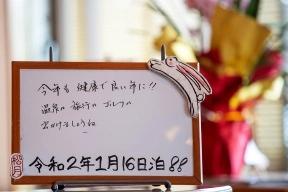 今年も健康で良い年に!!
温泉の旅行の ゴルフの
出かけましょうね
令和2年1月16日泊
松月